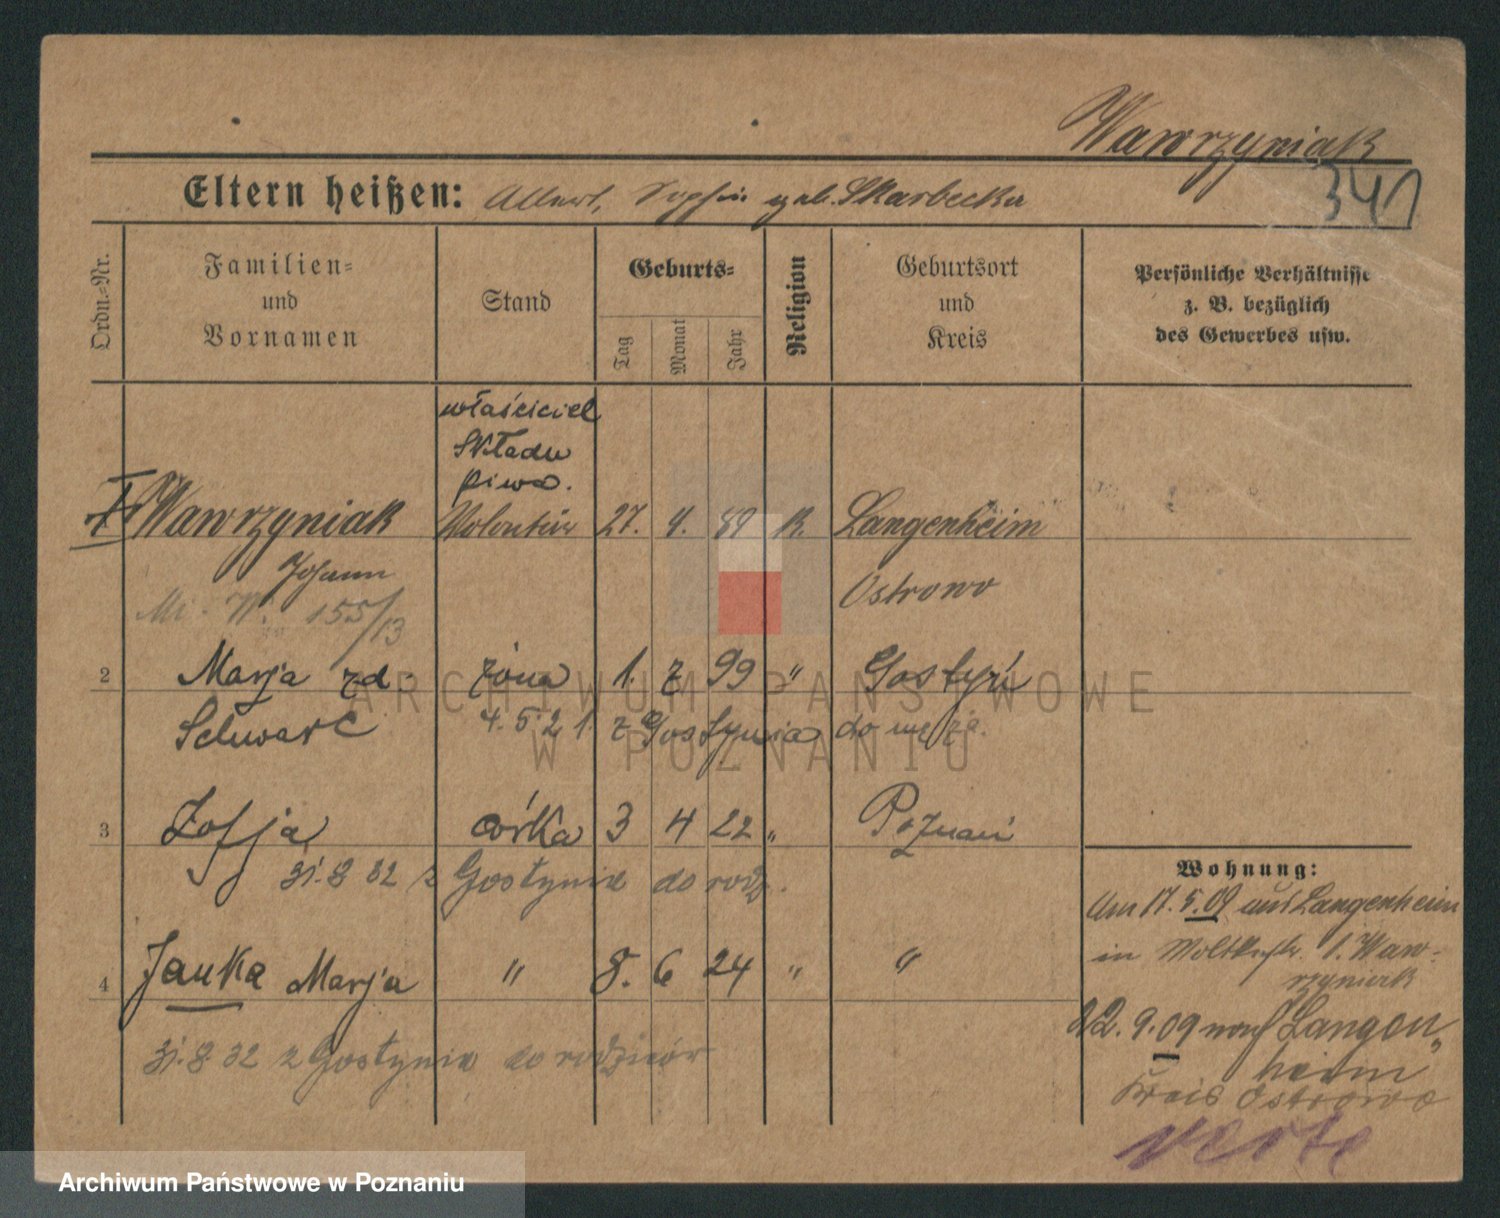 Wawrzyniak
341
Eltern heißen: Albert, Sophie geb. Skarbecka
Ordn.-Nr.
Familien-
und
Vornamen
Stand
Geburts-
Tag
Monat
Jahr
Religion
Geburtsort
und
Kreis
Persönliche Verhältnisse
z. B. bezüglich
des Gewerbes usw.
właściciel
Składu
piwa.
1 Wawrzyniak Volontär 27. 4. 89 K. Langenheim
Johann Ostrowo
155/13
2 Marja zd. żona 1. 7 99 " Gostyń
Schwarc 4.5.21. z Gostynia do męża.
3 Zofja córka 3 4 22 " Poznań
31.8 32 z Gostynia do rodz.
4 Janka Marja " 8. 6 24 " "
31.8 32 z Gostynia do rodziców
Wohnung:
Am 17.5.09 aus Langenheim
in Moltkestr. 1. Waw-
rzyniak
22.9.09 nach Langen-
heim
Kreis Ostrowo
verte
ARCHIWUM PAŃSTWOWE
W POZNANIU
Archiwum Państwowe w Poznaniu